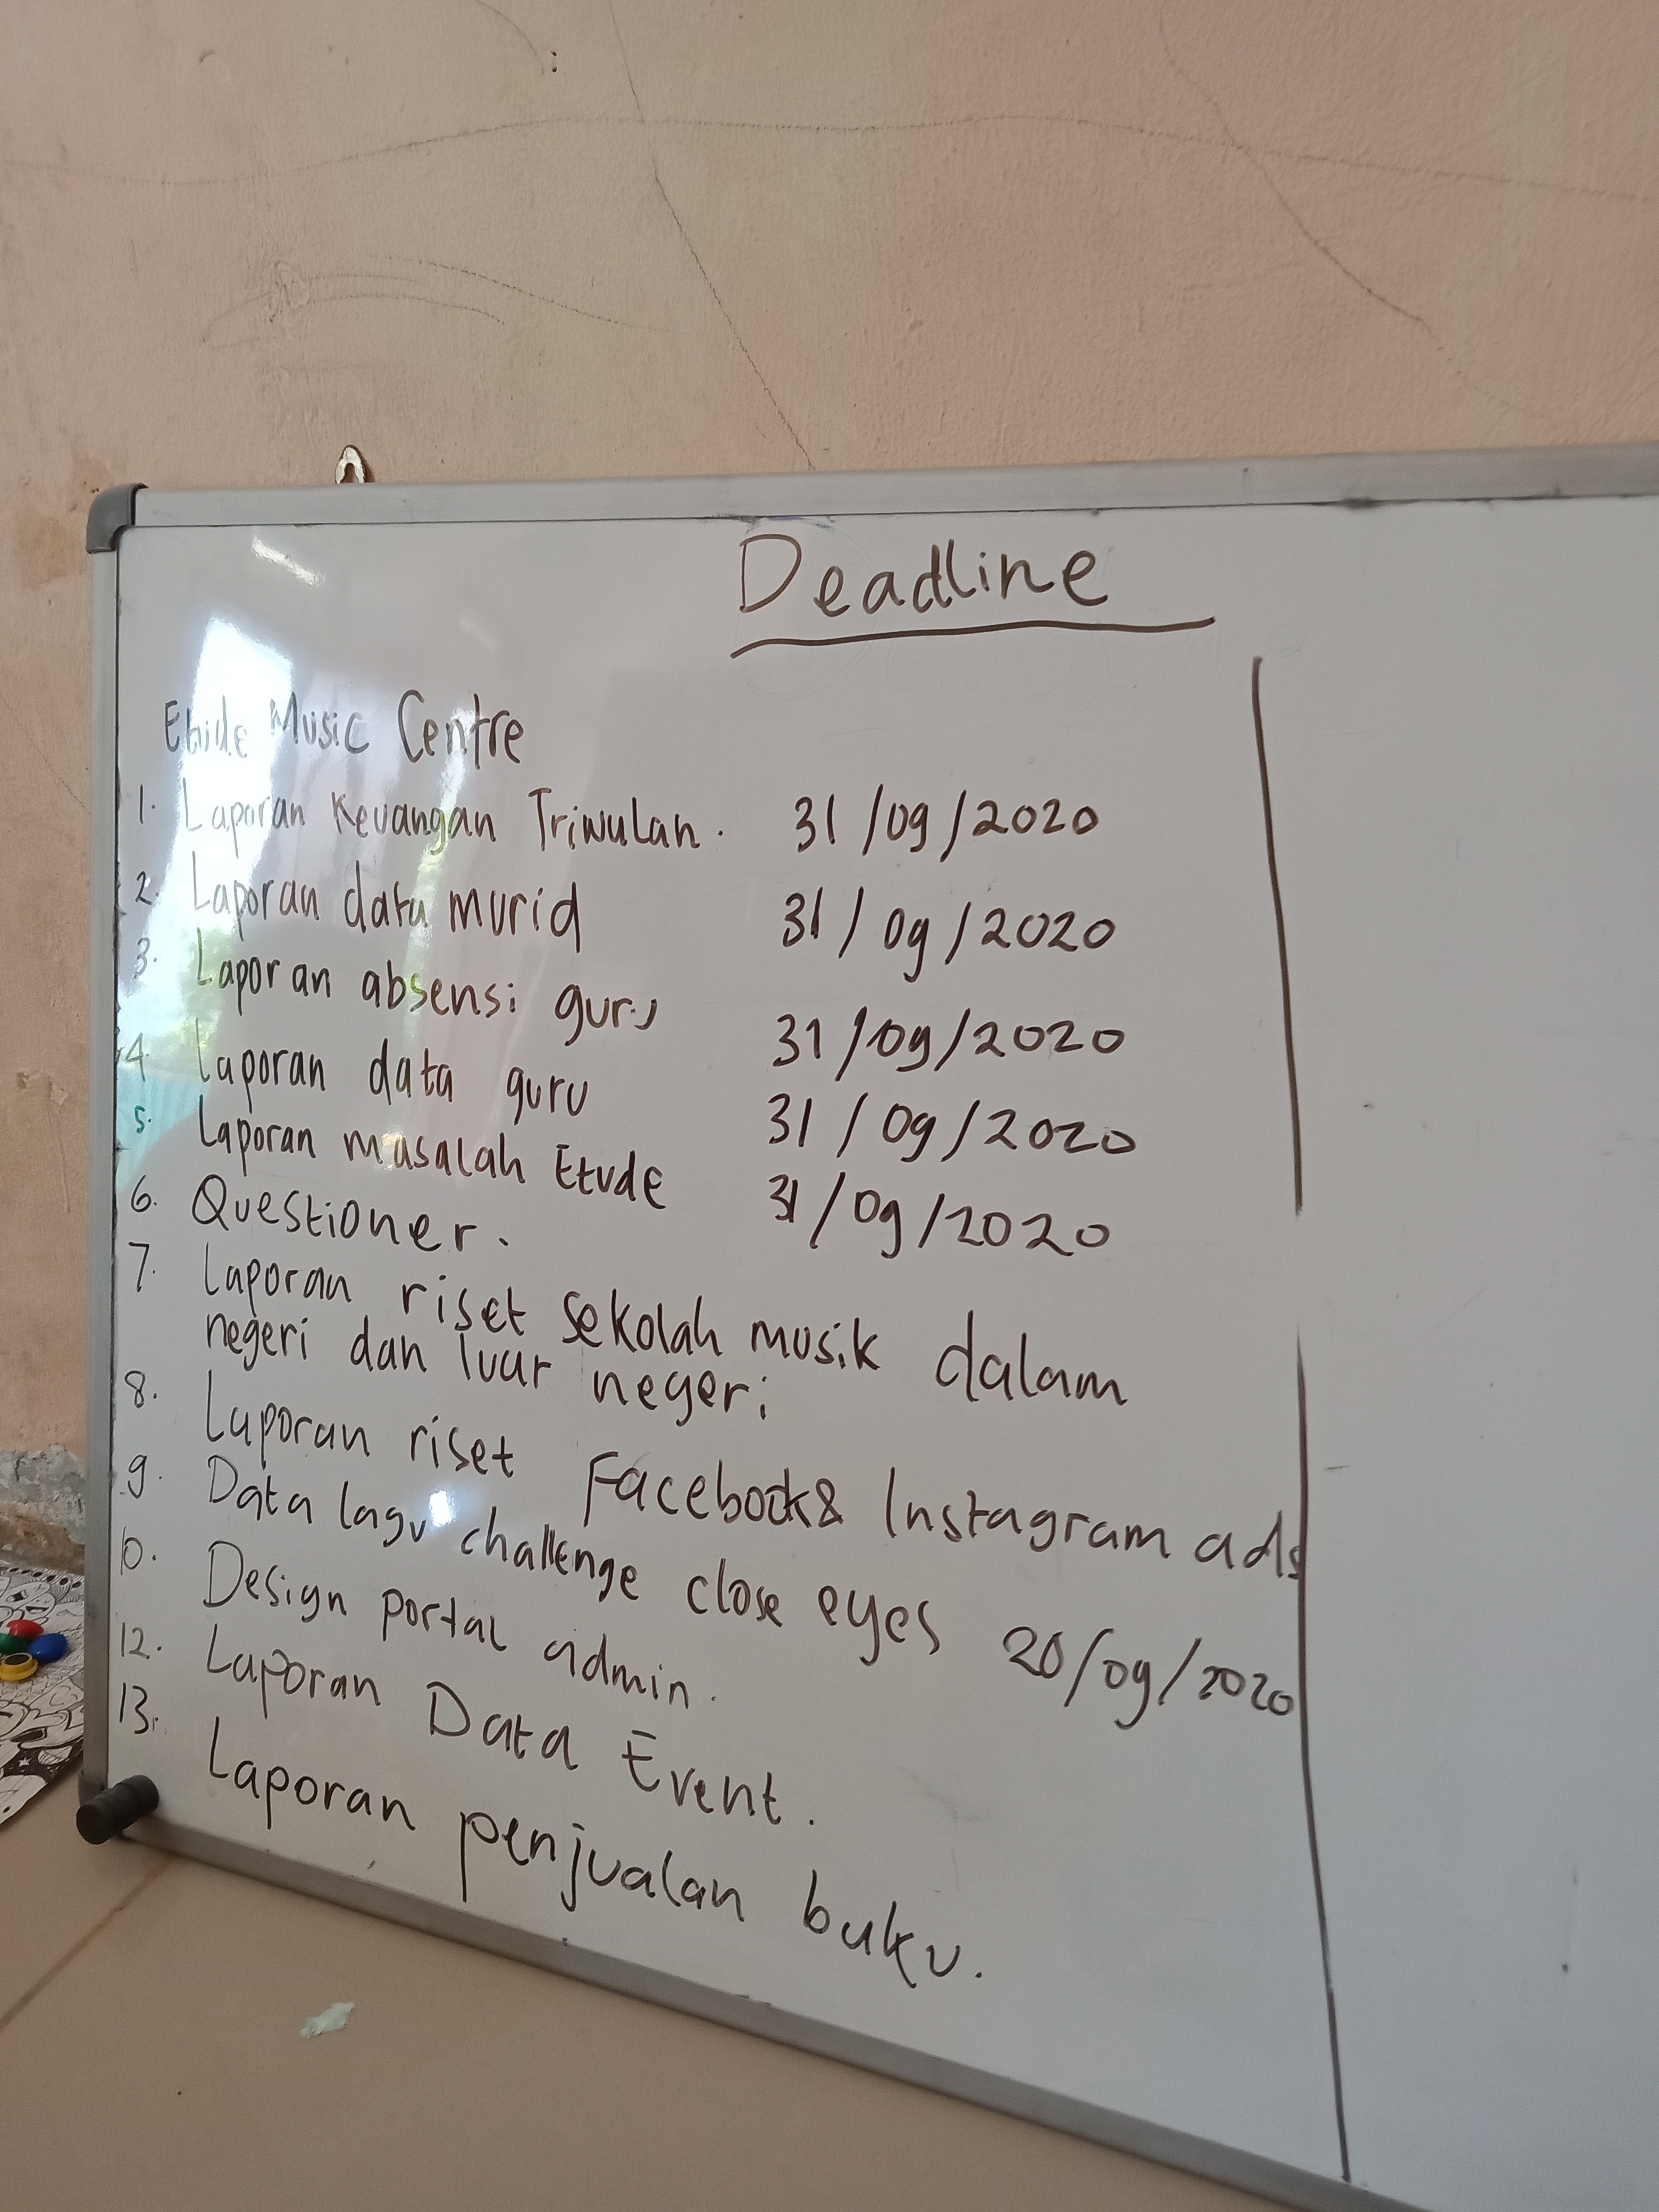 Deadline
Etude Music Centre
1. Laporan Keuangan Triwulan. 31/09/2020
2. Laporan data murid 31/09/2020
3. Laporan absensi guru 31/09/2020
4. Laporan data guru 31/09/2020
5. Laporan masalah Etude 31/09/2020
6. Questioner.
7. Laporan riset sekolah musik dalam
negeri dan luar negeri
8. Laporan riset Facebook & Instagram ads
9. Data lagu challenge close eyes 20/09/2020
10. Design portal admin.
12. Laporan Data Event.
13. Laporan penjualan buku.